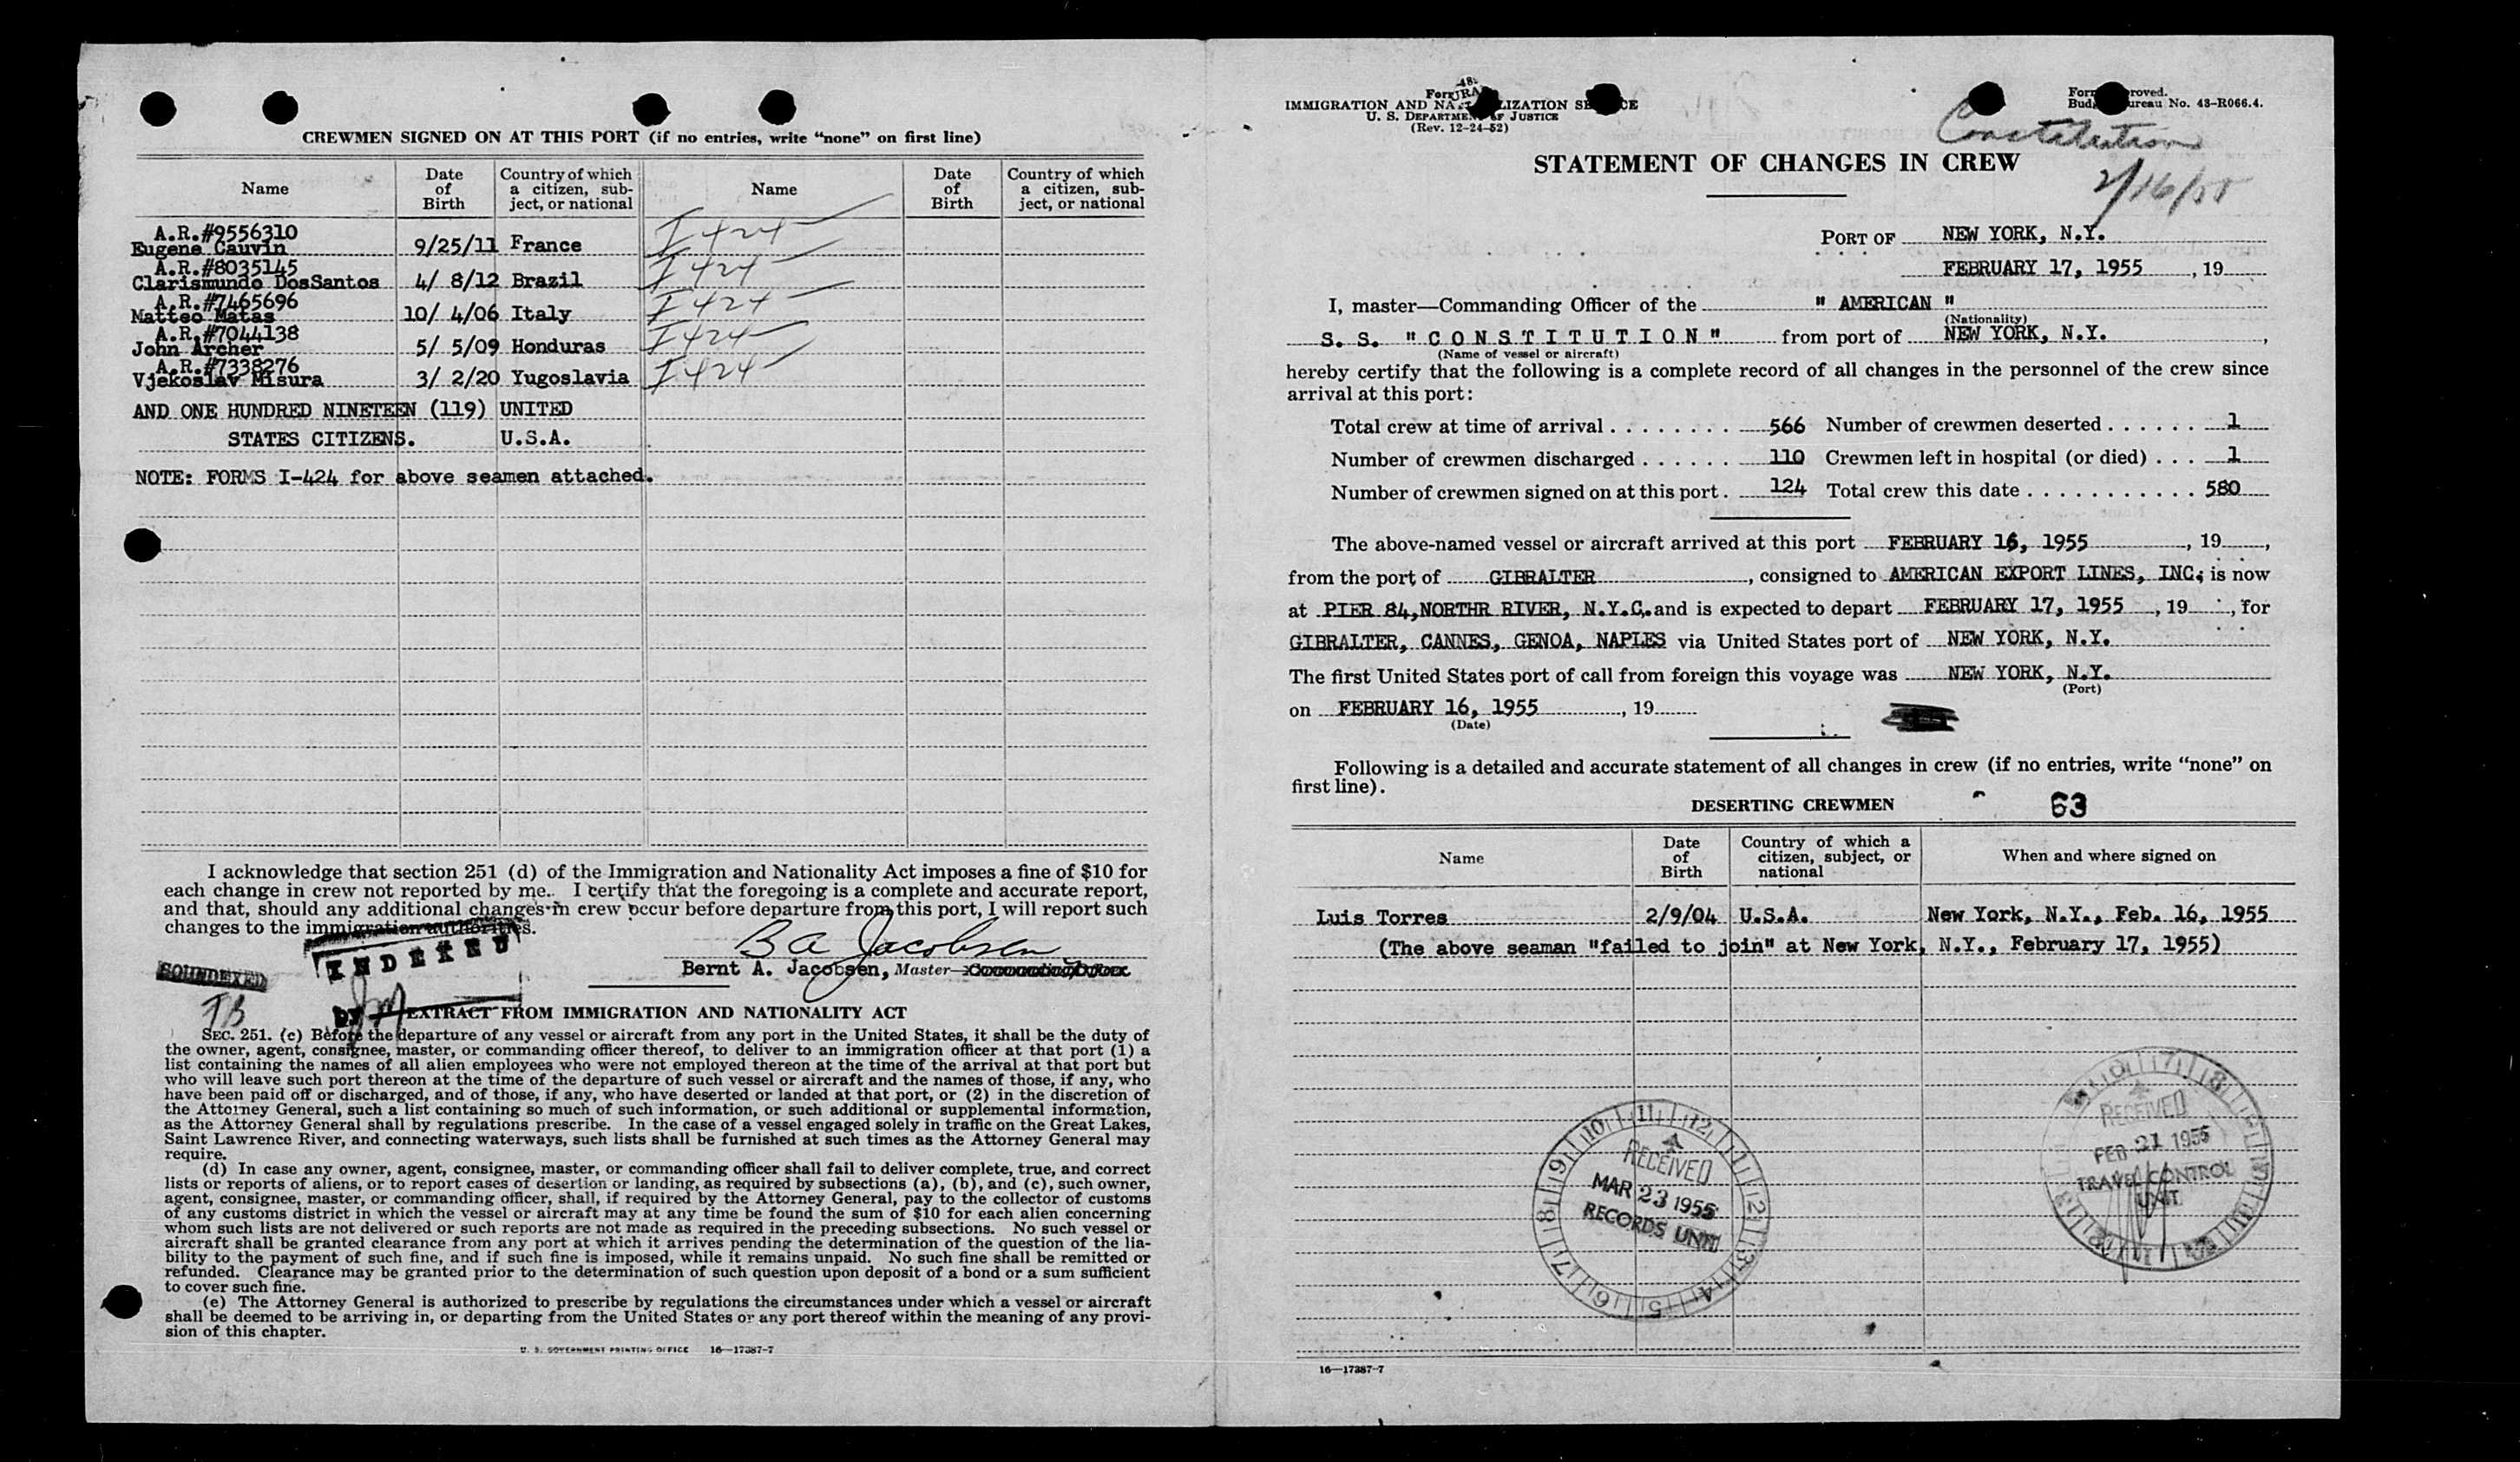 CREWMEN SIGNED ON AT THIS PORT (if no entries, write “none” on first line)
Name
Date of Birth
Country of which a citizen, subject, or national
Name
Date of Birth
Country of which a citizen, subject, or national
A.R.#9556310
Eugene Cauvin 9/25/11 France I 424
A.R.#8035145
Clarismundo DosSantos 4/ 8/12 Brazil I 424
A.R.#7465696
Matteo Matas 10/ 4/06 Italy I 424
A.R.#7044138
John Archer 5/ 5/09 Honduras I 424
A.R.#7338276
Vjekoslav Misura 3/ 2/20 Yugoslavia I 424
AND ONE HUNDRED NINETEEN (119) UNITED
STATES CITIZENS. U.S.A.
NOTE: FORMS I-424 for above seamen attached.
I acknowledge that section 251 (d) of the Immigration and Nationality Act imposes a fine of $10 for
each change in crew not reported by me. I certify that the foregoing is a complete and accurate report,
and that, should any additional changes in crew occur before departure from this port, I will report such
changes to the immigration authorities.
INDEXED
SOUNDEXED
B A Jacobsen
Bernt A. Jacobsen, Master—
TB
BY
EXTRACT FROM IMMIGRATION AND NATIONALITY ACT
SEC. 251. (c) Before the departure of any vessel or aircraft from any port in the United States, it shall be the duty of
the owner, agent, consignee, master, or commanding officer thereof, to deliver to an immigration officer at that port (1) a
list containing the names of all alien employees who were not employed thereon at the time of the arrival at that port but
who will leave such port thereon at the time of the departure of such vessel or aircraft and the names of those, if any, who
have been paid off or discharged, and of those, if any, who have deserted or landed at that port, or (2) in the discretion of
the Attorney General, such a list containing so much of such information, or such additional or supplemental information,
as the Attorney General shall by regulations prescribe. In the case of a vessel engaged solely in traffic on the Great Lakes,
Saint Lawrence River, and connecting waterways, such lists shall be furnished at such times as the Attorney General may
require.
(d) In case any owner, agent, consignee, master, or commanding officer shall fail to deliver complete, true, and correct
lists or reports of aliens, or to report cases of desertion or landing, as required by subsections (a), (b), and (c), such owner,
agent, consignee, master, or commanding officer, shall, if required by the Attorney General, pay to the collector of customs
of any customs district in which the vessel or aircraft may at any time be found the sum of $10 for each alien concerning
whom such lists are not delivered or such reports are not made as required in the preceding subsections. No such vessel or
aircraft shall be granted clearance from any port at which it arrives pending the determination of the question of the lia-
bility to the payment of such fine, and if such fine is imposed, while it remains unpaid. No such fine shall be remitted or
refunded. Clearance may be granted prior to the determination of such question upon deposit of a bond or a sum sufficient
to cover such fine.
(e) The Attorney General is authorized to prescribe by regulations the circumstances under which a vessel or aircraft
shall be deemed to be arriving in, or departing from the United States or any port thereof within the meaning of any provi-
sion of this chapter.
U. S. GOVERNMENT PRINTING OFFICE 16—17387-7
IMMIGRATION AND
U. S. DEPARTMENT OF JUSTICE
(Rev. 12-24-52)
No. 43-R066.4.
Constitution
2/16/55
STATEMENT OF CHANGES IN CREW
PORT OF NEW YORK, N.Y.
FEBRUARY 17, 1955, 19
I, master—Commanding Officer of the " AMERICAN "
(Nationality)
S. S. "CONSTITUTION" from port of NEW YORK, N.Y.,
(Name of vessel or aircraft)
hereby certify that the following is a complete record of all changes in the personnel of the crew since
arrival at this port:
Total crew at time of arrival 566 Number of crewmen deserted 1
Number of crewmen discharged 110 Crewmen left in hospital (or died) 1
Number of crewmen signed on at this port 124 Total crew this date 580
The above-named vessel or aircraft arrived at this port FEBRUARY 16, 1955, 19,
from the port of GIBRALTER, consigned to AMERICAN EXPORT LINES, INC. is now
at PIER 84,NORTHR RIVER, N.Y.C. and is expected to depart FEBRUARY 17, 1955, 19, for
GIBRALTER, CANNES, GENOA, NAPLES via United States port of NEW YORK, N.Y.
The first United States port of call from foreign this voyage was NEW YORK, N.Y.
(Port)
on FEBRUARY 16, 1955, 19
(Date)
Following is a detailed and accurate statement of all changes in crew (if no entries, write “none” on
first line).
DESERTING CREWMEN 63
Name
Date of Birth
Country of which a citizen, subject, or national
When and where signed on
Luis Torres 2/9/04 U.S.A. New York, N.Y., Feb. 16, 1955
(The above seaman "failed to join" at New York, N.Y., February 17, 1955)
RECEIVED
MAR 23 1955
RECORDS UNIT
RECEIVED
FEB 21 1955
TRAVEL CONTROL
UNIT
16—17387-7